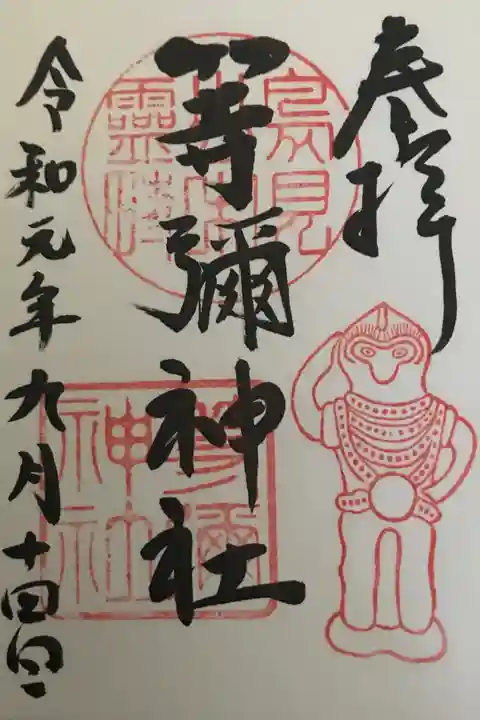 奉拝
等彌神社
令和元年九月十四日
鳥見
山中
靈畤
等彌
神社